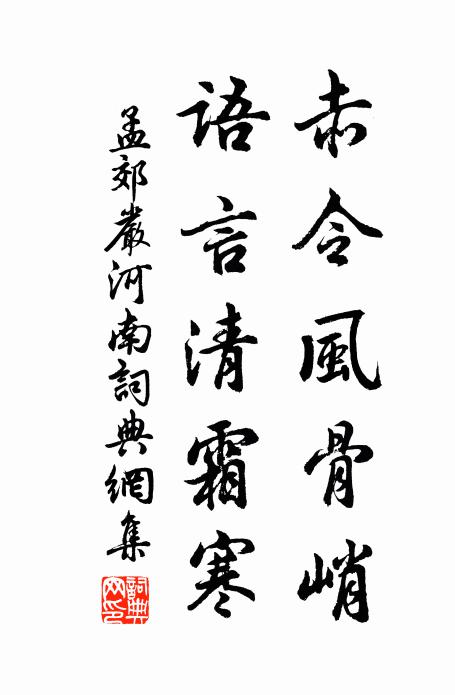 赤令風骨峭
語言清霜寒
孟郊嚴河南詞典網集
詞典
网印